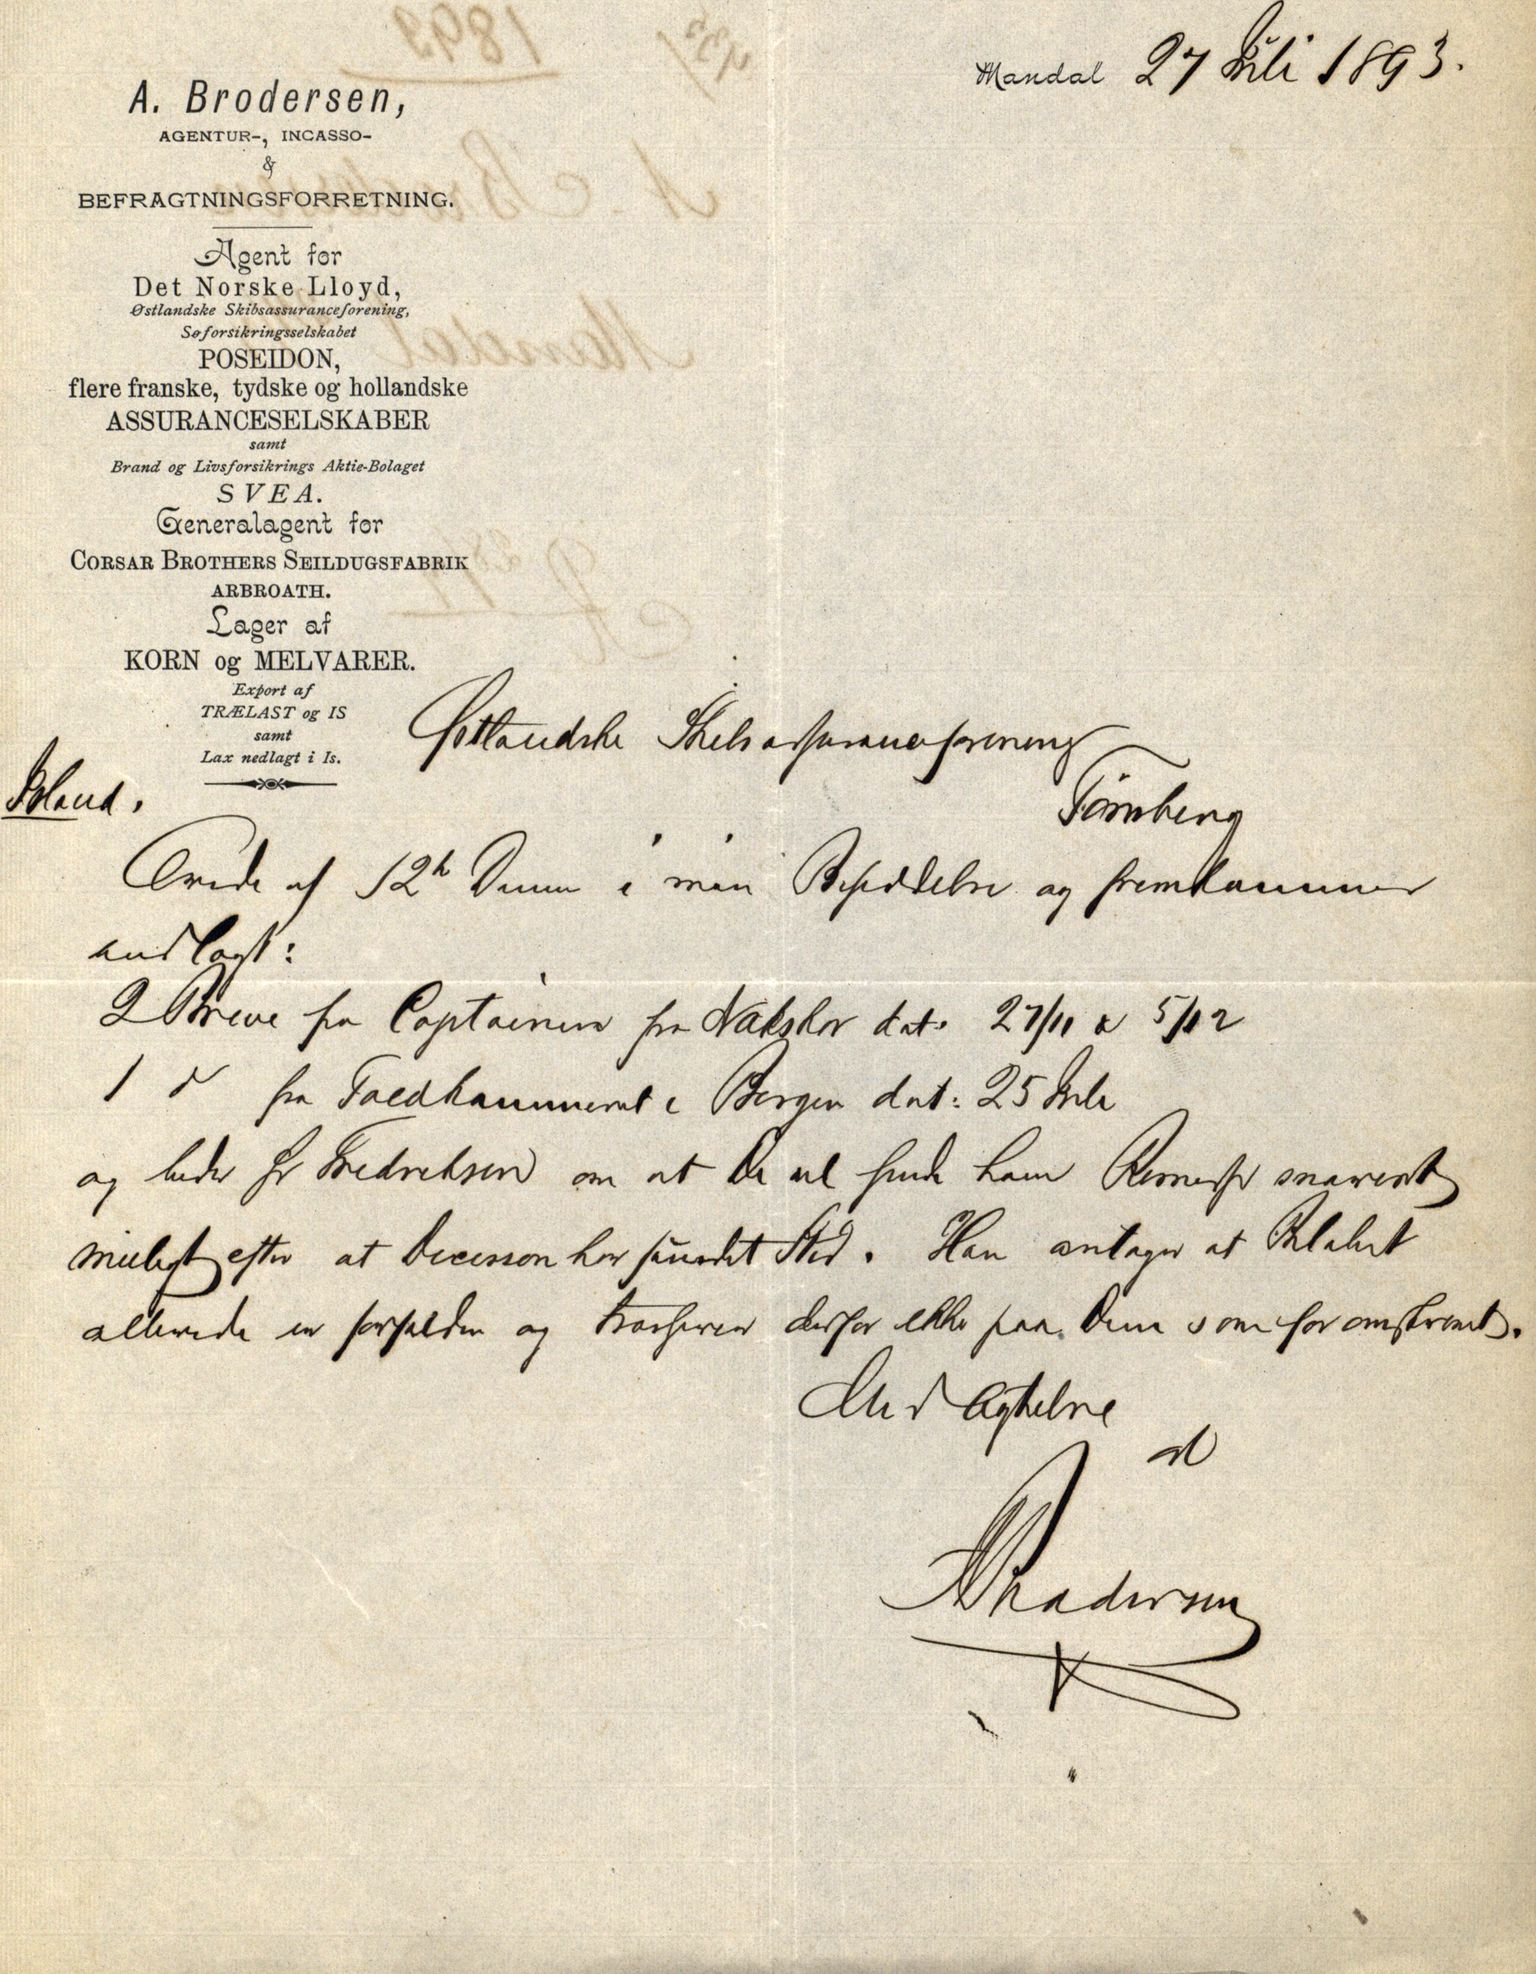 Mandal 27 Juli 1893.
A. Brodersen,
AGENTUR-, INCASSO-
&
BEFRAGTNINGSFORRETNING.
Agent for
Det Norske Lloyd,
Østlandske Skibsassuranceforening,
Søforsikringsselskabet
POSEIDON,
flere franske, tydske og hollandske
ASSURANCESELSKABER
samt
Brand og Livsforsikrings Aktie-Bolaget
SVEA.
Generalagent for
CORSAR BROTHERS SEILDUGSFABRIK
ARBROATH.
Lager af
KORN og MELVARER.
Export af
TRÆLAST og IS
samt
Lax nedlagt i Is.
Østlandske Skibsassuranceforening
Tønsberg
Island.
Ærede af 12h Dennes i min Besiddelse og fremkommer
indlagt:
2 Breve fra Captainen fra Nakskov dat. 27/11 & 5/12
1 d fra Toldkammeret i Bergen dat: 25 Juli
og beder hr Fredriksen om at De vil sende ham Remesse snarest
muligt efter at Decisson har fundet Sted. Han antager at Beløbet
allerede er forfalden og trasserer derfor ikke paa Dem som før omskrevet.
Med Agtelse
A Brodersen
1893
A. Brodersen
Mandal